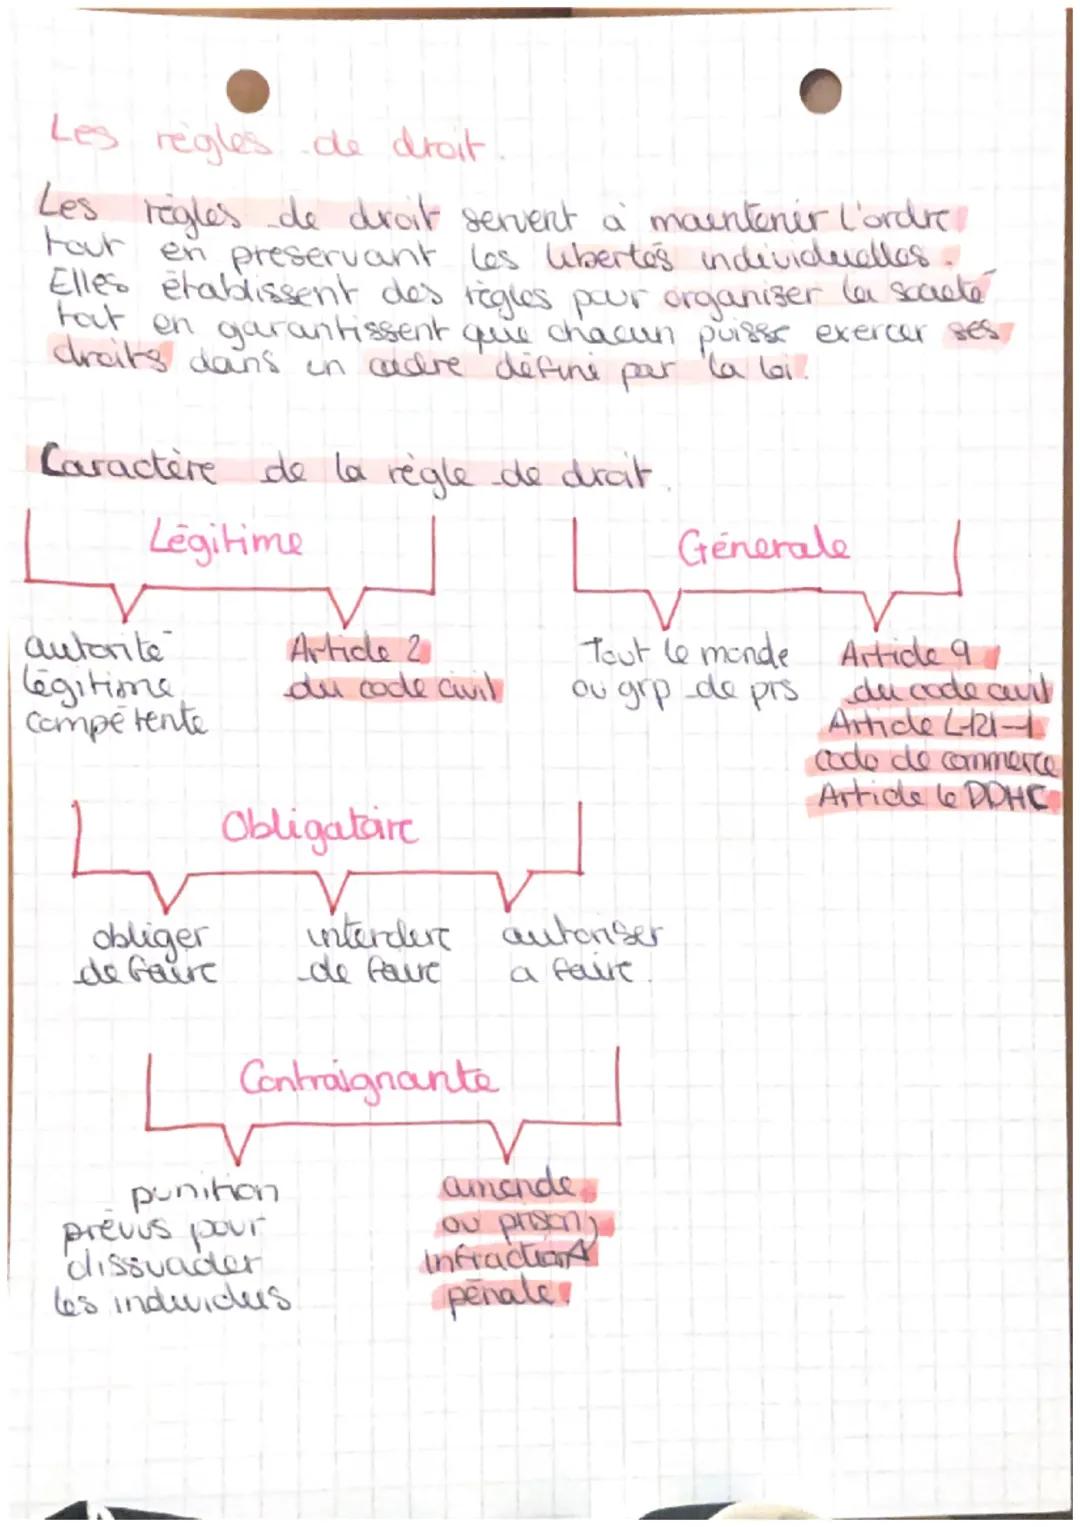 Les règles de droit.
Les règles de droit servent à maintenir l'ordre
tout en preservant les libertés individuelles.
Elles établissent des règles pour organiser la société
tout en garantissent que chacun puisse exercer ses
droits dans un cadre défini par la loi.
Caractère de la règle de droit.
Légitime
autorité
légitime
compétente
Article 2
du code civil
Génerale
Tout le monde
ou grp de prs
Article 9
du code civil
Article L121-1
code de commerce
Article 6 DDHC
Obligatoire
obliger
de faire
interdire
de faire
autoriser
a faire.
Contraignante
punition
prévus pour
dissuader
les individus
amende
ou prison,
infraction
pénale.